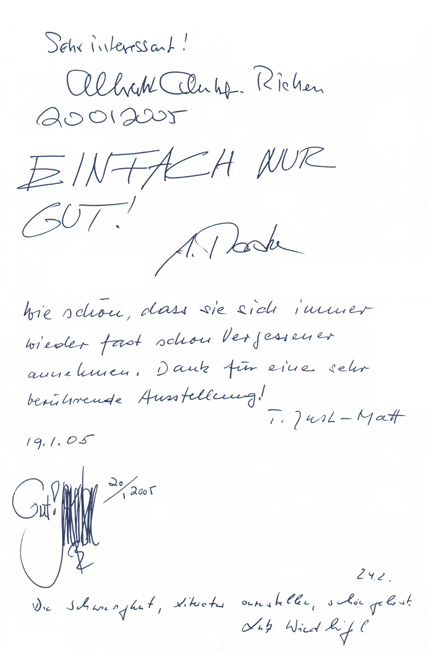 Sehr interessant!
Albrecht Riehen
20012005
EINFACH NUR
GUT!
A.
Wie schön, dass sie sich immer
wieder fast schon Vergessener
annehmen. Dank für eine sehr
berührende Ausstellung!
T. Just-Matt
19.1.05
Gut! 20/1 2005
24.2.
Die Schwierigkeit, Literatur auszustellen, schön gelöst.